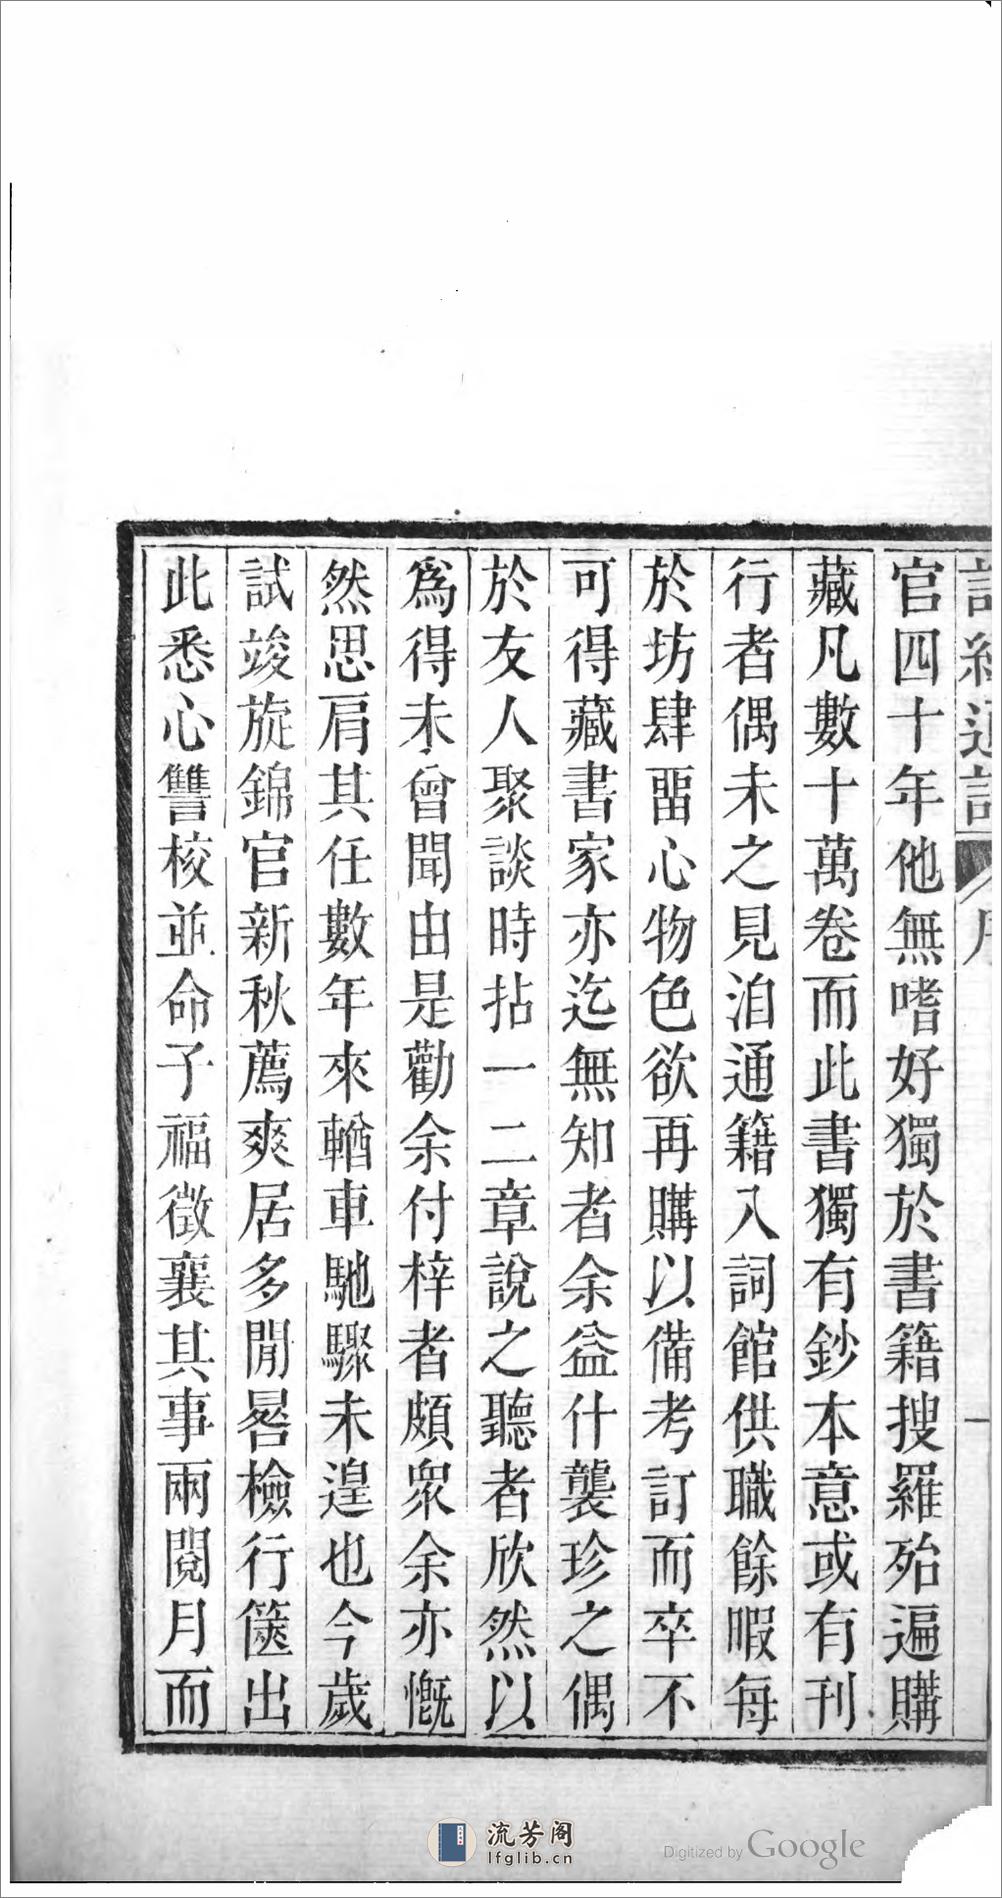 詩經通論 序 一
官四十年他無嗜好獨於書籍搜羅殆遍購
藏凡數十萬卷而此書獨有鈔本意或有刊
行者偶未之見洎通籍入詞館供職餘暇每
於坊肆畱心物色欲再購以備考訂而卒不
可得藏書家亦迄無知者余益什襲珍之偶
於友人聚談時拈一二章說之聽者欣然以
爲得未曾聞由是勸余付梓者頗衆余亦慨
然思肩其任數年來輶車馳驟未遑也今歲
試竣旋錦官新秋薦爽居多閒晷檢行篋出
此悉心讐校並命子福徵襄其事兩閱月而
流芳阁
lfglib.cn
Digitized by Google